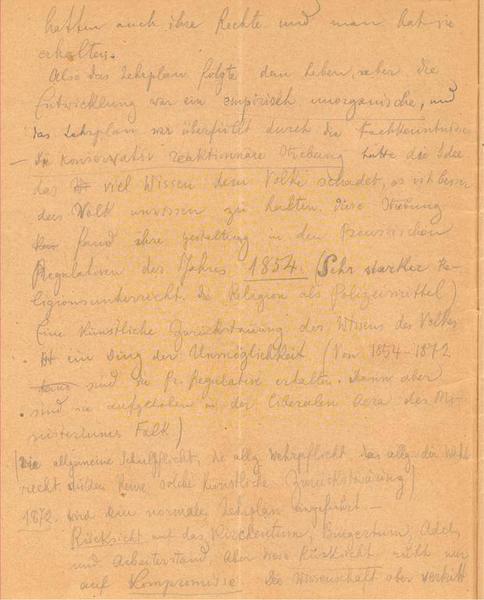 hatten auch ihre Rechte und man hat sie
erhalten.
Also das Lehrplan folgte dem Leben, aber die
Entwicklung war ein empirisch unorganische, und
das Lehrplan war überfüllt durch die Fachkenntnisse
– Die konservativ reaktionäre Strebung hatte die Idee
das viel Wissen dem Volke schadet, es ist besser
das Volk unwissen zu halten. Diese Strebung
fand ihre Gestaltung in den Preussischen
Regulativen des Jahres 1854. (Sehr starker Re-
ligionsunterricht. Die Religion als Polizeimittel)
Eine künstliche Zurückstauung des Wissens des Volkes
ist ein Ding der Unmöglichkeit (Von 1854–1872
sind die Pr. Regulative erhalten. Dann aber
sind sie aufgehoben in der Liberalen Aera des Mi-
nisteriums Falk)
(Die allgemeine Schulpflicht, die allg. Wehrpflicht, das allg. Wahl-
recht dulden keine solche künstliche Zurückstauung)
1872. wird ein normales Lehrplan eingeführt –
Rücksicht auf das Kirchentum, Bürgertum, Adel,
und Arbeiterstand, aber diese Rücksicht führt nur
auf Kompromisse Die Wissenschaft aber